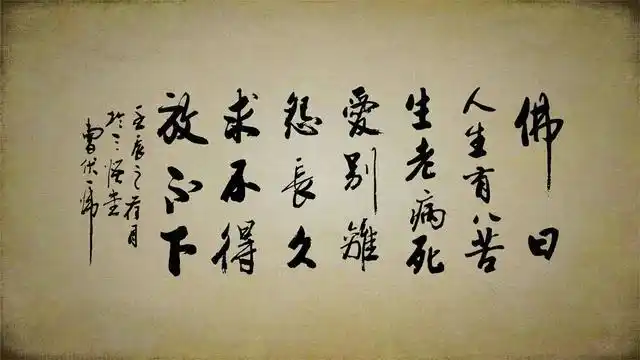 佛曰
人生有八苦
生老病死
愛别離
怨長久
求不得
放不下
壬辰之荷月
於三悟堂
曹伏一帰